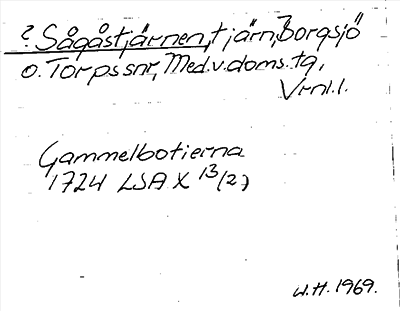 ? Sågåstjärnen, tjärn, Borgsjö
o. Torps snr, Med.v.doms. tg,
Vrnl.l.
Gammelbotierna
1724 LSA X 13/(2)
W.H. 1969.